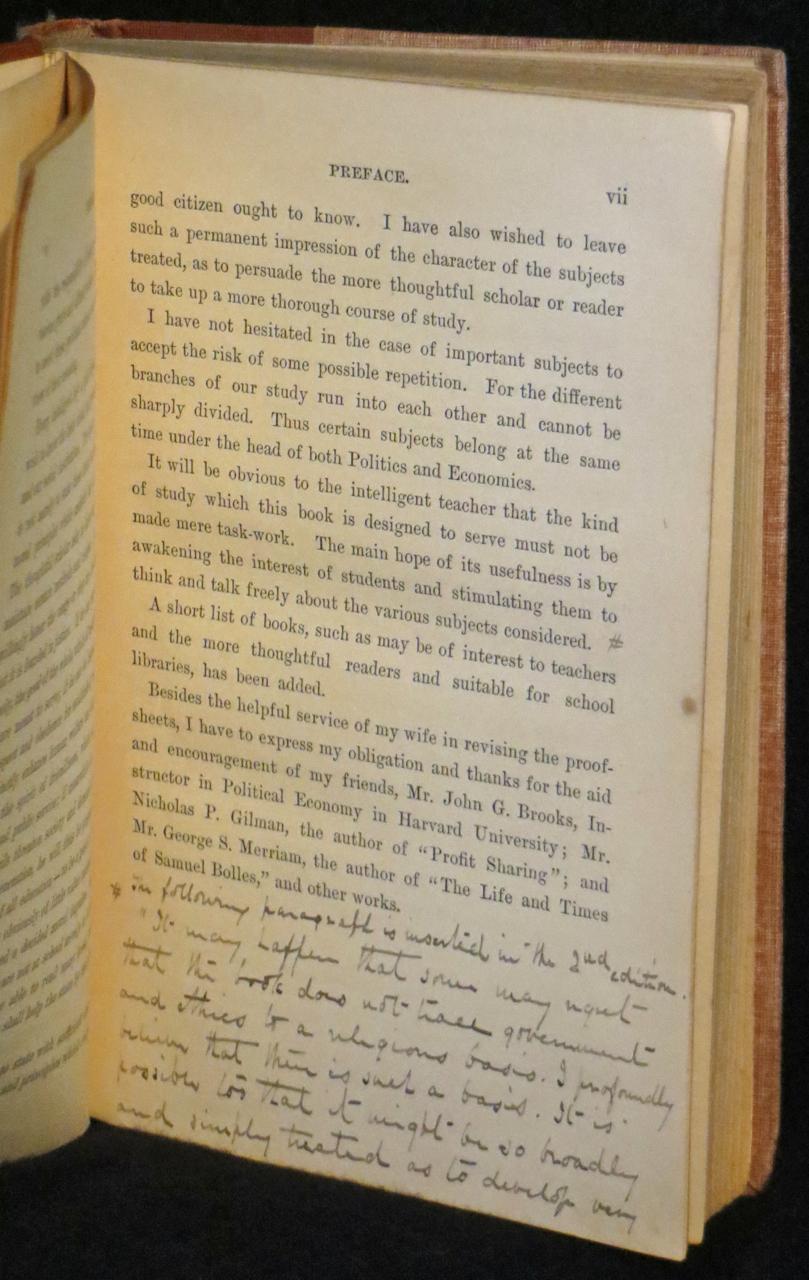 PREFACE. vii
good citizen ought to know. I have also wished to leave
such a permanent impression of the character of the subjects
treated, as to persuade the more thoughtful scholar or reader
to take up a more thorough course of study.
I have not hesitated in the case of important subjects to
accept the risk of some possible repetition. For the different
branches of our study run into each other and cannot be
sharply divided. Thus certain subjects belong at the same
time under the head of both Politics and Economics.
It will be obvious to the intelligent teacher that the kind
of study which this book is designed to serve must not be
made mere task-work. The main hope of its usefulness is by
awakening the interest of students and stimulating them to
think and talk freely about the various subjects considered. #
A short list of books, such as may be of interest to teachers
and the more thoughtful readers and suitable for school
libraries, has been added.
Besides the helpful service of my wife in revising the proof-
sheets, I have to express my obligation and thanks for the aid
and encouragement of my friends, Mr. John G. Brooks, In-
structor in Political Economy in Harvard University; Mr.
Nicholas P. Gilman, the author of "Profit Sharing"; and
Mr. George S. Merriam, the author of "The Life and Times
of Samuel Bolles," and other works.
# The following paragraph is inserted in the 2nd edition.
"It may happen that some may regret
that the book does not trace government
and ethics to a religious basis. I profoundly
believe that there is such a basis. It is
possible too that it might be so broadly
and simply treated as to develop very